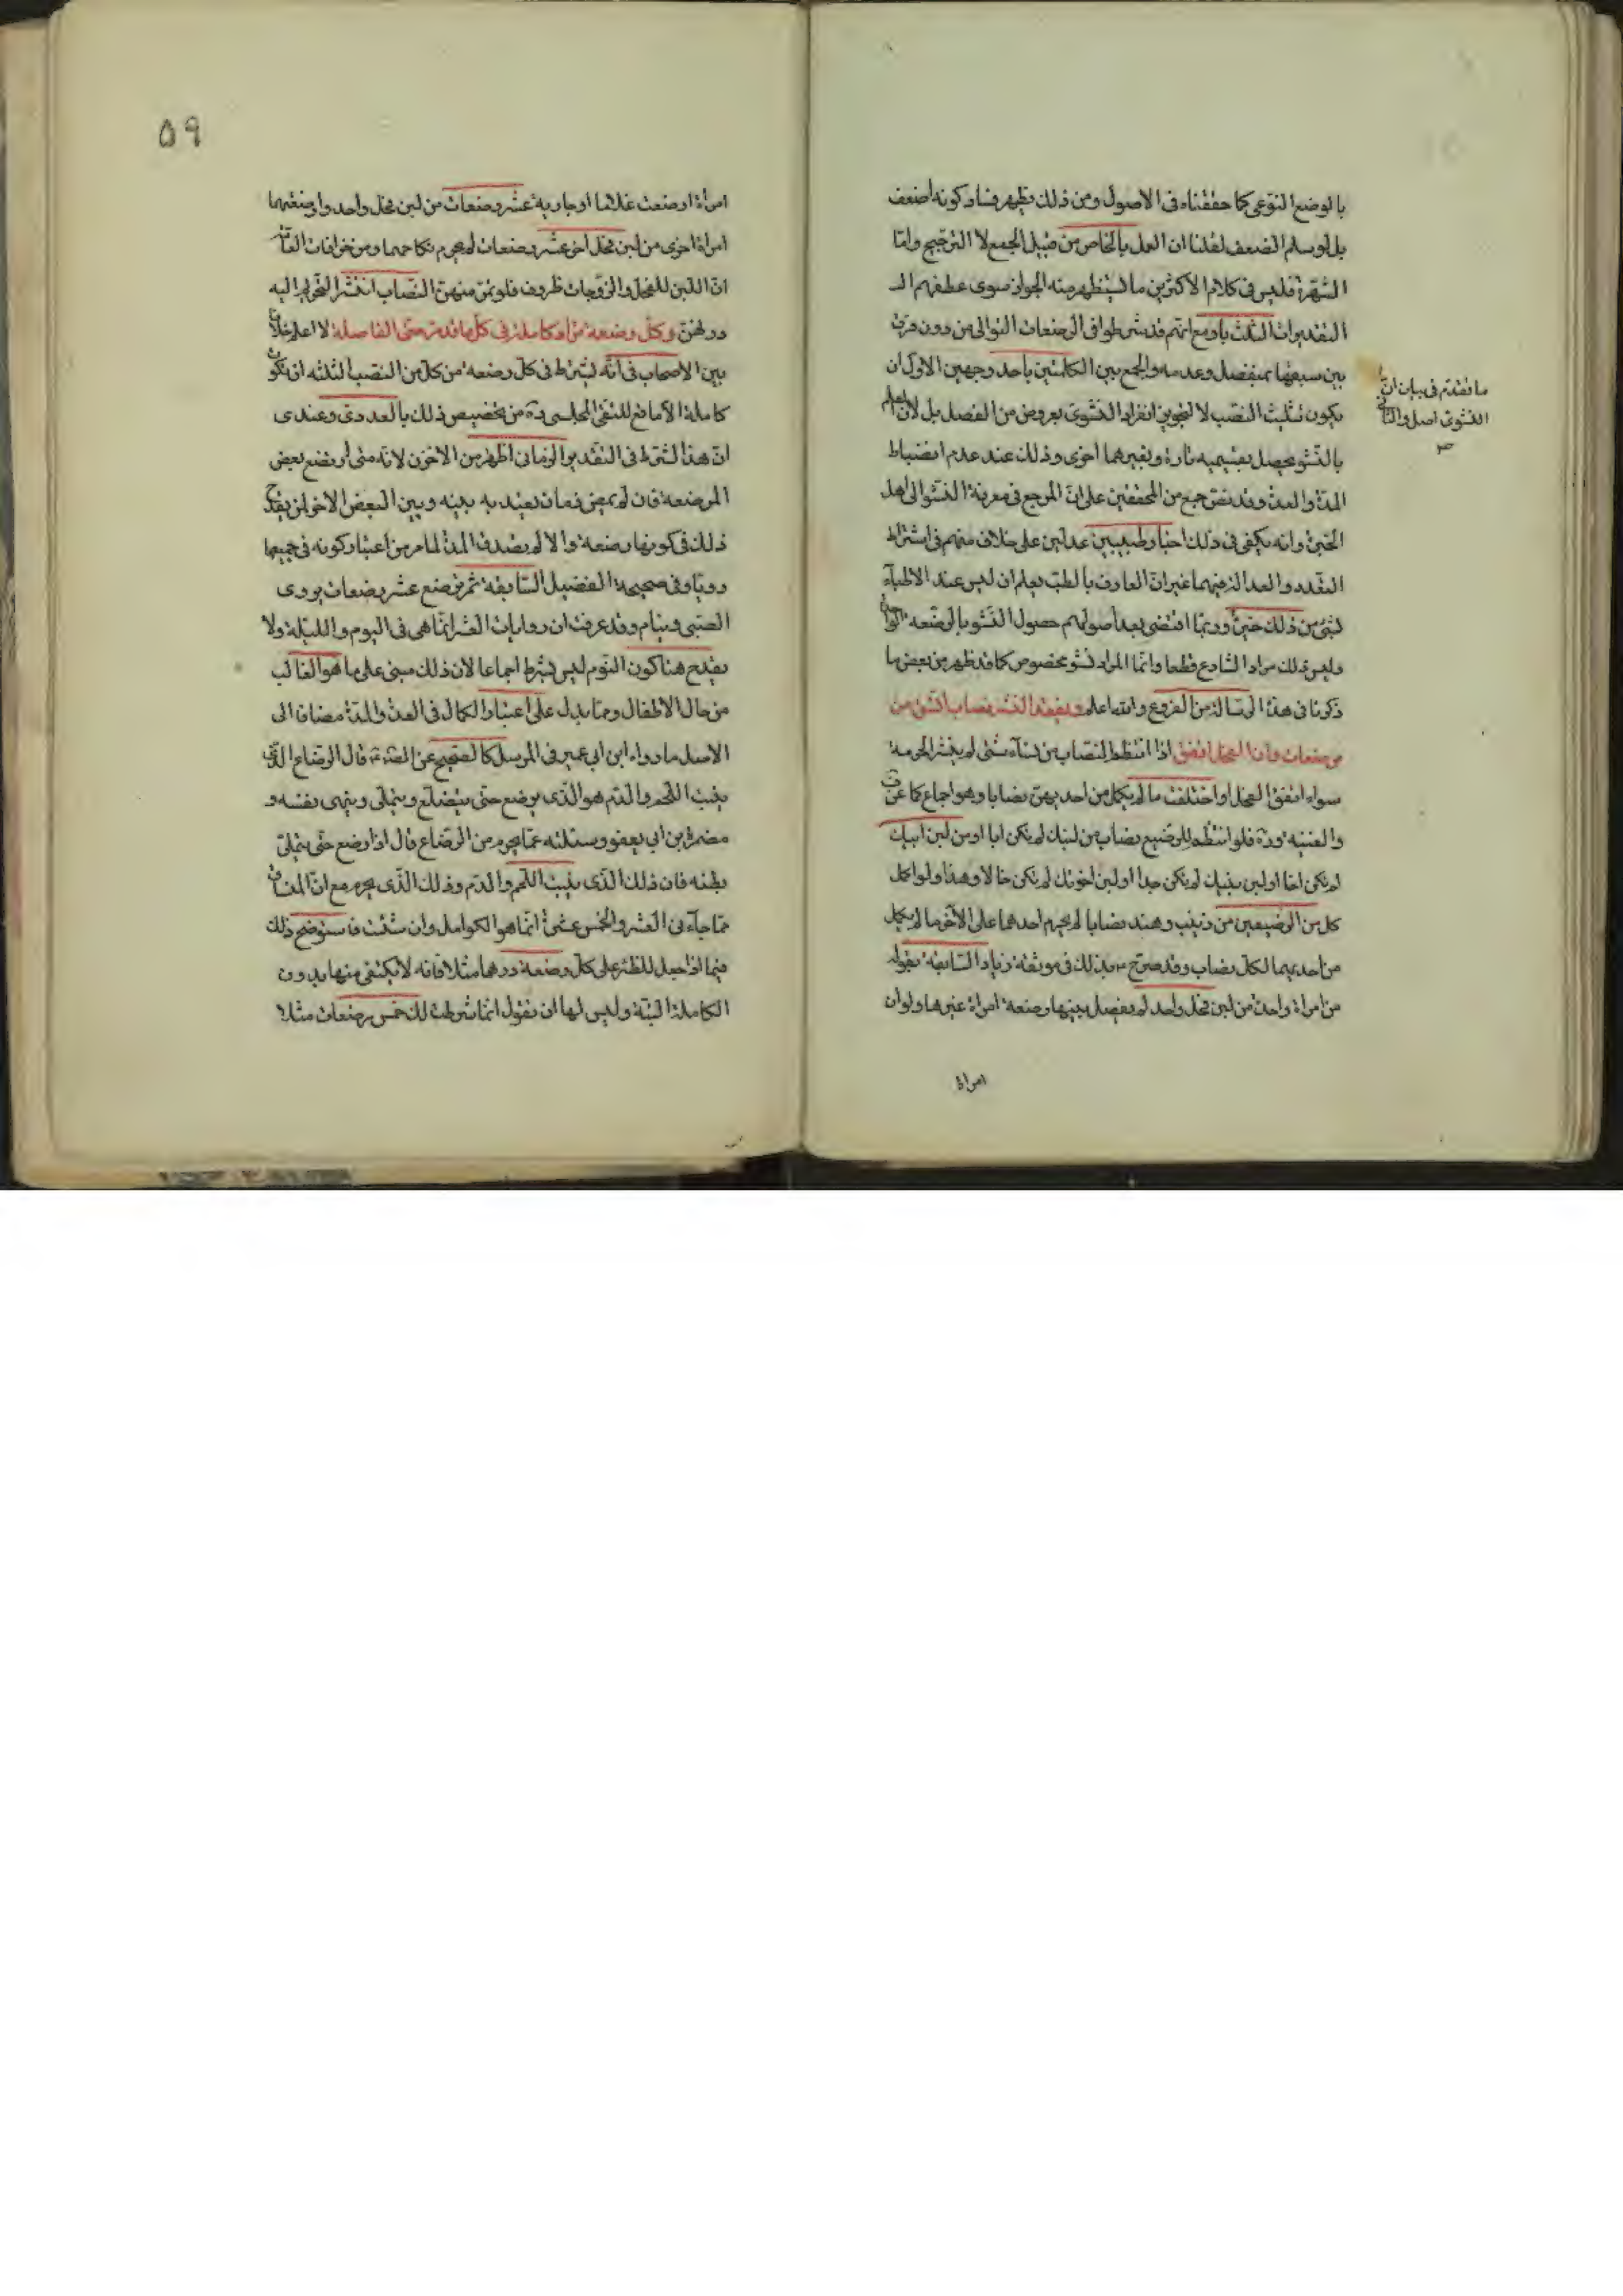 بالوضع النوعى كما حققناه فى الاصول ومن ذلك يظهر فساد كونه اضعف
بل لو سلم الضعف لقلنا ان العمل بالخاص من قبيل الجمع لا الترجيح واما
الشهرة فليس فى كلام الاكثرين ما يستظهر منه الجواز سوى عطفهم
التقديرات الثلث باو مع انهم قد شرطوا فى الرضعات التوالى من دون فرق
بين سبقها بمنفصل وعدمه والجمع بين الكلمتين باحد وجهين الاول ان
يكون تثليث النصب لا لتجويز انفراد النشوى بعروض من الفصل بل لان العلم
بالنشو يحصل بقسيميه تارة وبغيرهما اخرى وذلك عند عدم انضباط
المدة والعدة وقد نص جمع من المحققين على ان المرجع فى معرفة النشو الى اهل
الخبرة وانه يكفى فى ذلك اخبار طبيبين عدلين على خلاف منهم فى اشتراط
التعدد والعدالة فيهما غير ان العارف بالطب يعلم ان ليس عند الاطباء
شئ من ذلك خبرة وربما اقتضى بعد اصولهم حصول النشو بالرضعه الواحدة
وليس ذلك مراد الشارع قطعا وانما المراد نشو مخصوص كما قد ظهر من بعض ما
ذكرنا فى هذا الرسالة من الفروع والله اعلم ويفقد النشر بنصاب اتسق من
مرضعات وان الفحل اتفق اذا انتظم النصاب من نساء شتى لم ينشر الحرمة
سواء اتفق الفحل او اختلف ما لم يكمل من احديهن نصابا وهو اجماع كما عن
والغنيه وره فلو انتظم للرضيع نصاب من لبنك لم تكن ابا او من لبن ابيك
لم يكن اخا او لبن بنيك لم يكن جدا او لبن اخوتك لم يكن خالا وهذا ولو اكمل
كل من الرضيعين من زينب وهند نصابا لم يحرم احدهما على الآخر ما لم يكمل
من احديهما لكل نصاب وقد صرح بذلك فى موثقة زياد السابقة بقوله
من امراة واحدة من لبن فحل واحد لم يفصل بينها رضعة امراة غيرها ولو ان
امراة
ما تقدم فى بيان ان
النشوى اصل والثانى
امراة ارضعت غلاما او جارية عشر رضعات من لبن فحل واحد وارضعتهما
امراة اخرى من لبن فحل آخر عشر رضعات لم يحرم نكاحهما ومن خرافات العامة
ان اللبن للفحل والزوجات ظروف فلو تم منهن النصاب انتشر التحريم اليه
دونهن وكل رضعة تراد كاملة فى كل ما قدرت حتى الفاصلة لا اعلم خلافا
بين الاصحاب فى انه يشترط فى كل رضعه من كل من النصب الثلثه ان تكون
كاملة الا ما وقع للتقى المجلسى ره من تخصيص ذلك بالعددى وعندى
ان هذا الشرط فى التقدير الزمانى اظهر من الاخرين لانه متى لم يرضع بعض
المرضعة فان لم يمض زمان يعتد به بينه وبين البعض الاخر لم يقدح
ذلك فى كونها رضعة والا لم يصدق المدة لما مر من اعتبار كونه فى جميعها
رويا وفى صحيحة الفضيل السابقة ثم ترضع عشر رضعات يروى
الصبى وينام وقد عرفت ان روايات العشر انما هى فى اليوم والليلة ولا
يقدح هنا كون النوم ليس بشرط اجماعا لان ذلك مبنى على ما هو الغالب
من حال الاطفال ومما يدل على اعتبار الكمال فى العدة والمدة مضافا الى
الاصل ما رواه ابن ابى عمير فى المرسل كالصحيح عن الصادق قال الرضاع الذى
ينبت اللحم والدم هو الذى يرضع حتى يتضلع ويتملى وينتهى نفسه و
مضمرة بن ابى يعفور سئلته عما يحرم من الرضاع قال اذا رضع حتى يمتلئ
بطنه فان ذلك الذى ينبت اللحم والدم وذلك الذى يحرم مع ان المنساق
مما جاء فى العشر والخمس عشرة انما هو الكوامل وان شئت فاستوضح ذلك
فيما اذا جعل للظئر على كل رضعة درهما مثلا فانه لا يكتفى منها بدون
الكاملة البتة وليس لها ان تقول انما شرطت لك خمس رضعات مثلا
۵۹